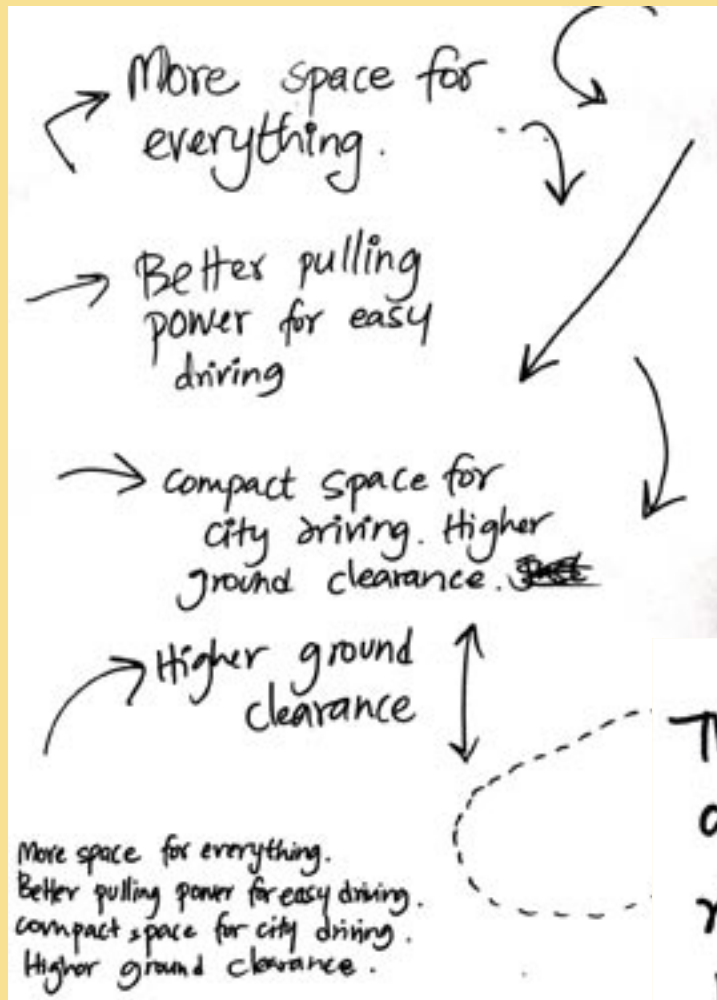 More space for
everything.
Better pulling
power for easy
driving
compact space for
city driving. Higher
ground clearance.
Higher ground
clearance
More space for everything.
Better pulling power for easy driving.
compact space for city driving.
Higher ground clearance.